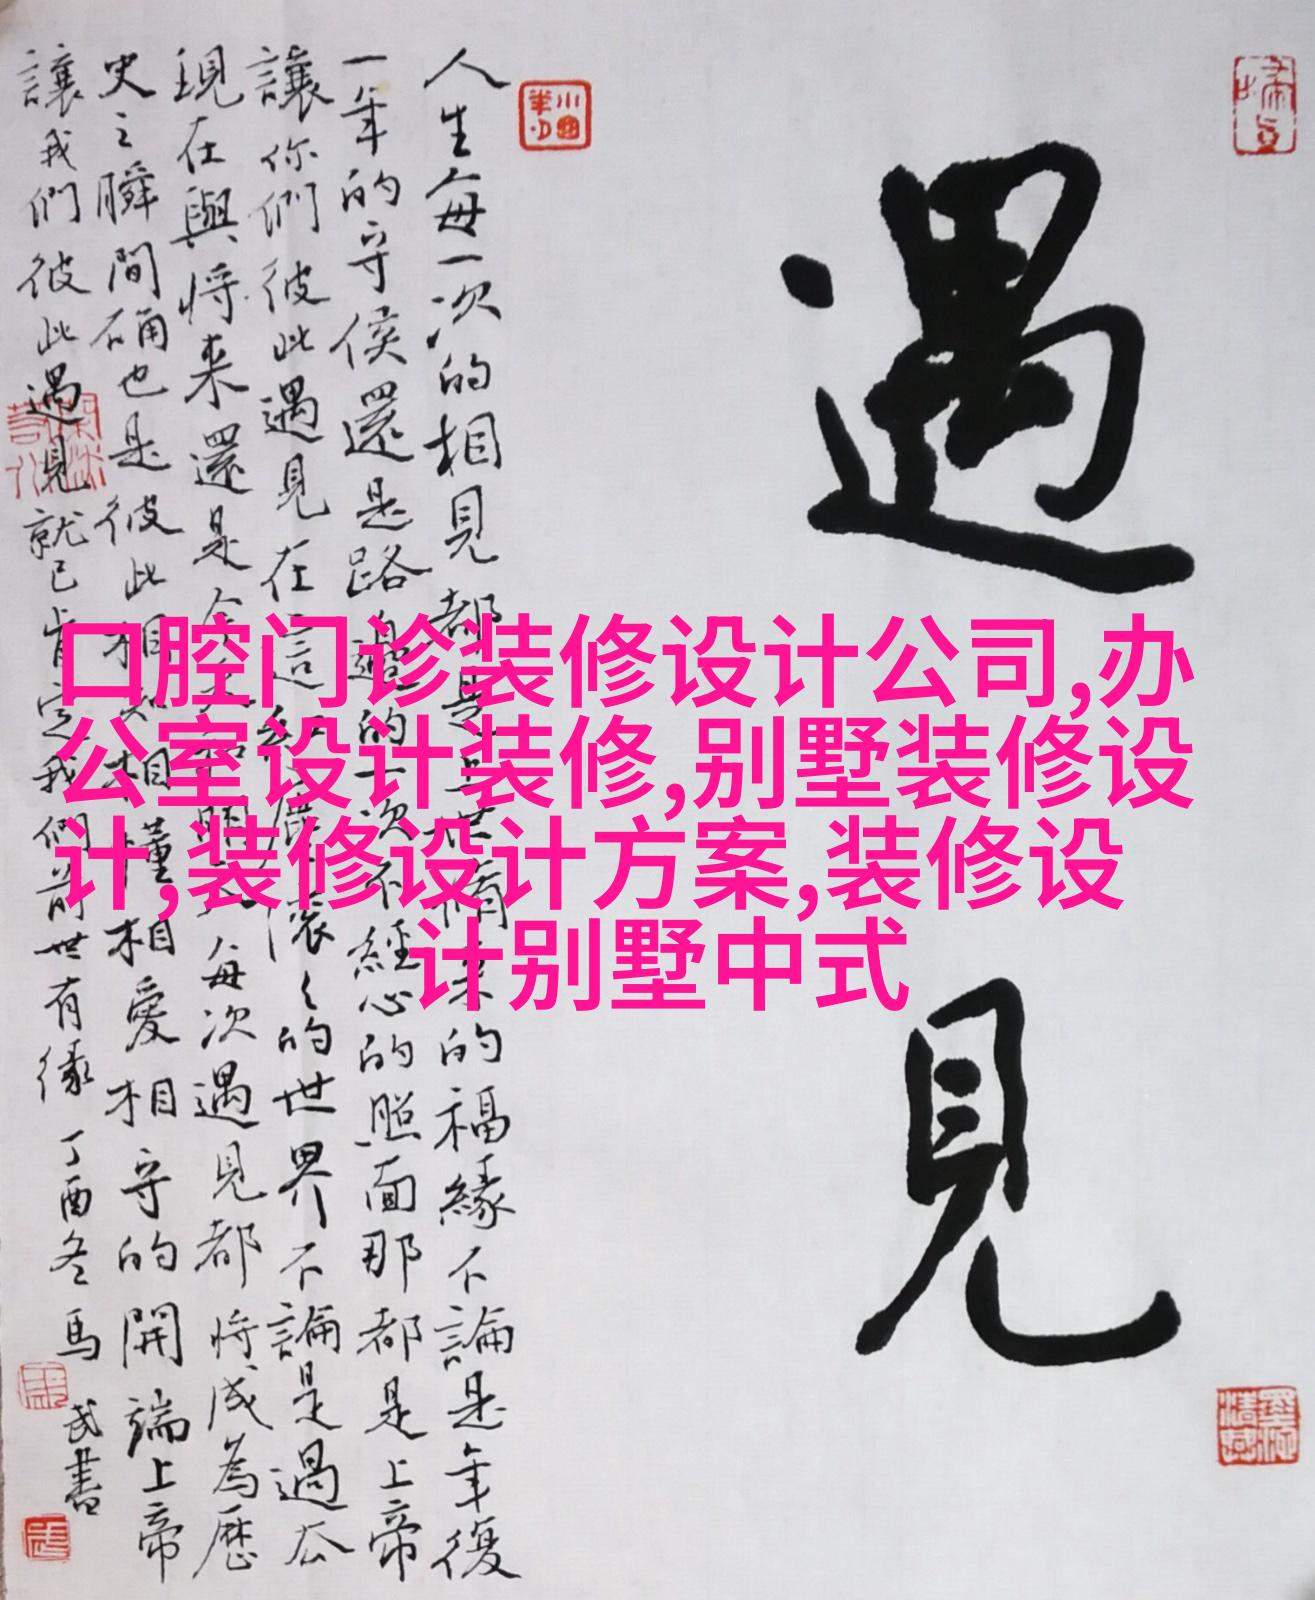 遇見
人生每一次的相見都是上世脩来的福緣不論是年復
一年的守侯還是路過的一次不經心的照面那都是上帝
讓你們彼此遇見在這紅塵滾々的世界不論是過去
現在與將来還是今天和明天每次遇見都將成為歷
史之瞬間确也是彼此相知相懂相愛相守的開端上帝
讓我們彼此遇見就已肯定我們前世有缘 丁酉冬馬武書
口腔门诊装修设计公司,办
公室设计装修,别墅装修设
计,装修设计方案,装修设
计别墅中式